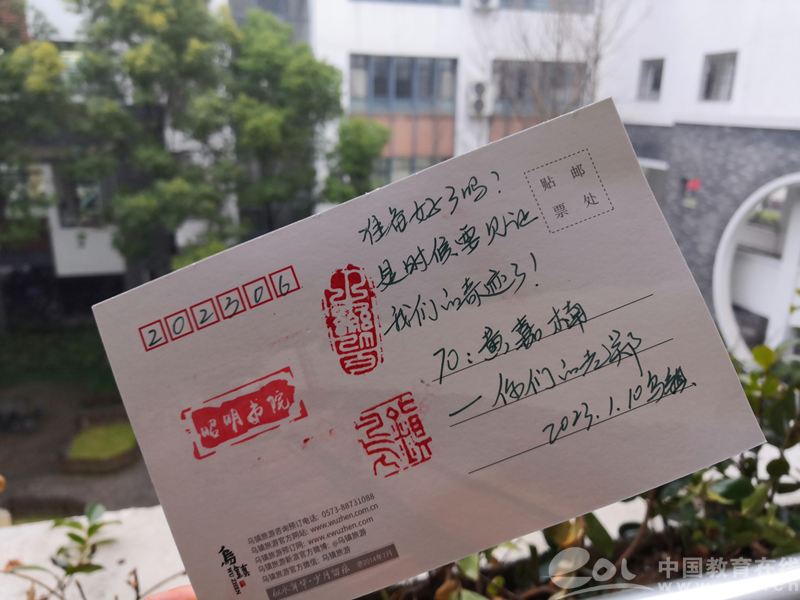 准备好了吗?
是时候要见证
我们的奇迹了!
TO:黄嘉楠
—你们的老郑
2023.1.10乌镇
贴 邮
票 处
202306
昭明书院
乌镇旅游咨询预订电话: 0573-88731088
乌镇旅游官方网站: www.wuzhen.com.cn
乌镇旅游预订网: www.ewuzhen.com
乌镇旅游新浪官方微博: @乌镇旅游
乌镇旅游官方微信: 乌镇旅游
乌镇
©2014年1月
eol 中国教育在线